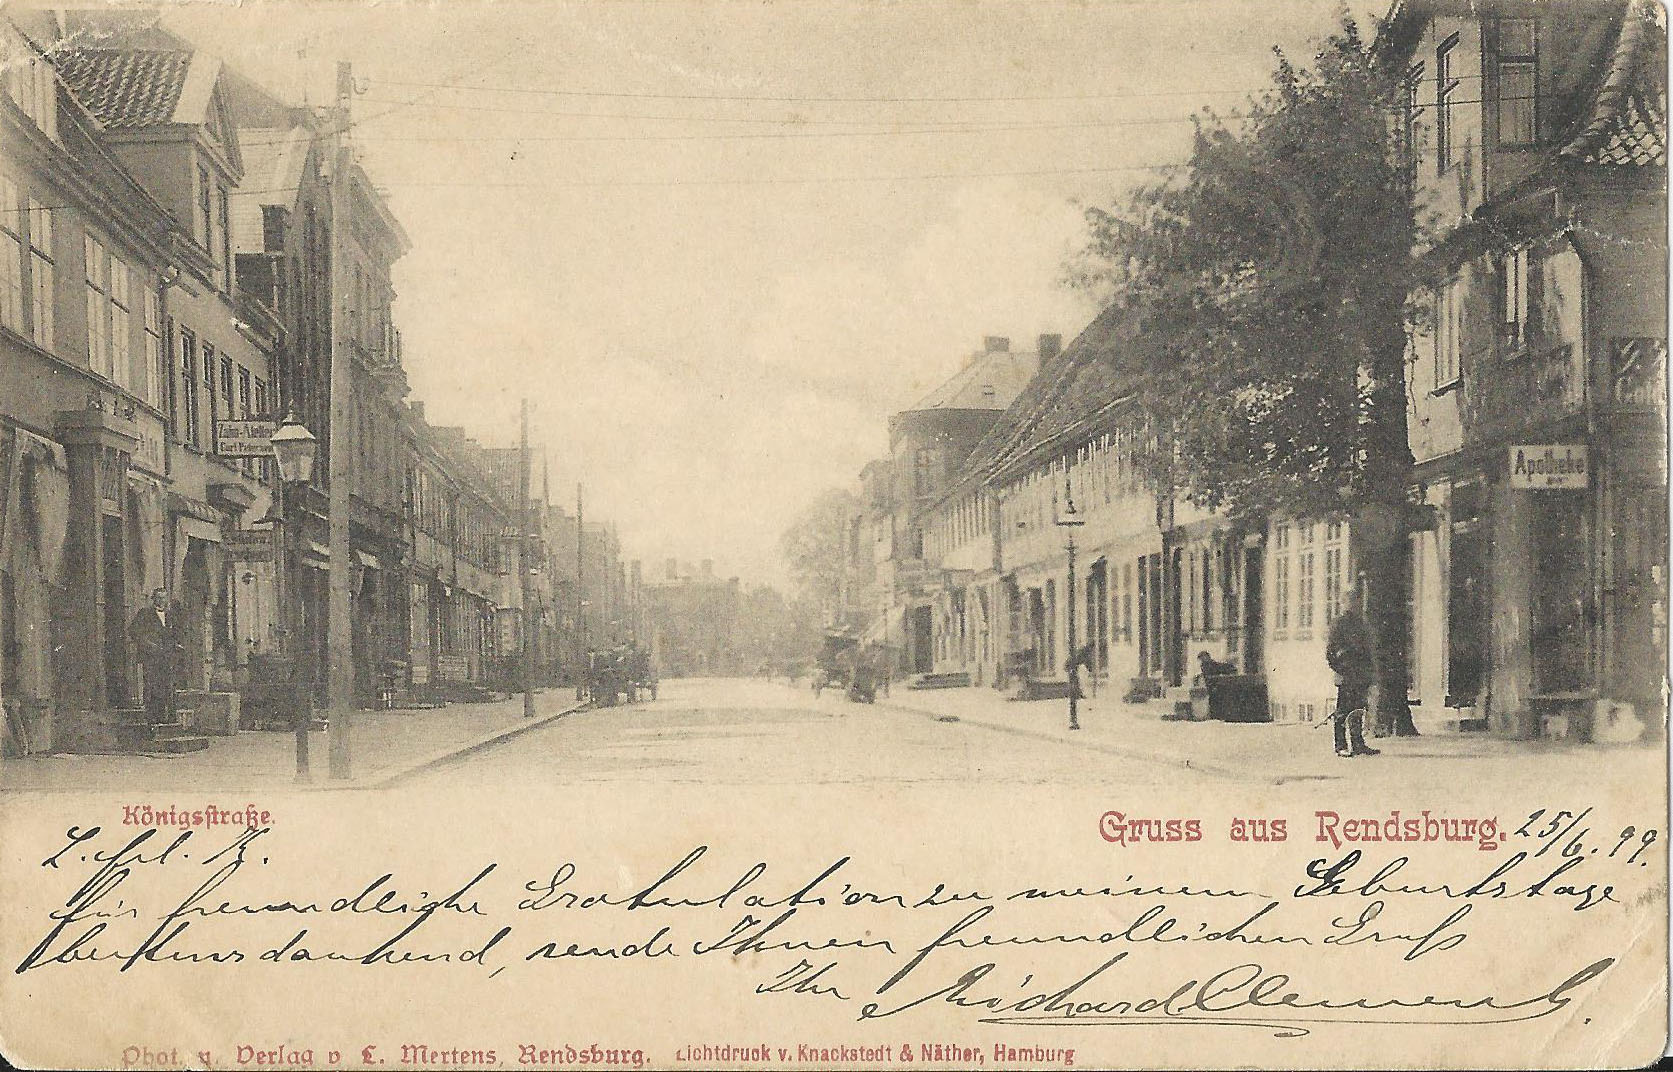 Zahn-Atelier
Carl Petersen
Apotheke
Königsstraße.
Gruss aus Rendsburg.
25/6. 99.
L. Frl. K.
für freundliche Gratulation zu meinem Geburtstage
bestens dankend, sende Ihnen freundlichen Gruß
Ihr Richard Clemens.
Phot. u. Verlag v L. Mertens, Rendsburg. Lichtdruck v. Knackstedt & Näther, Hamburg